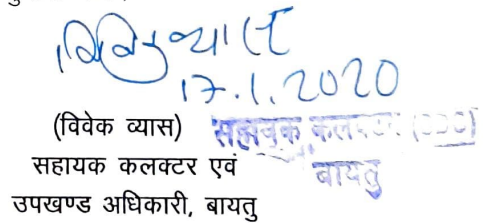 विवेक व्यास
17.1.2020
(विवेक व्यास)
सहायक कलक्टर एवं
उपखण्ड अधिकारी, बायतु
सहायक कलक्टर
बायतु